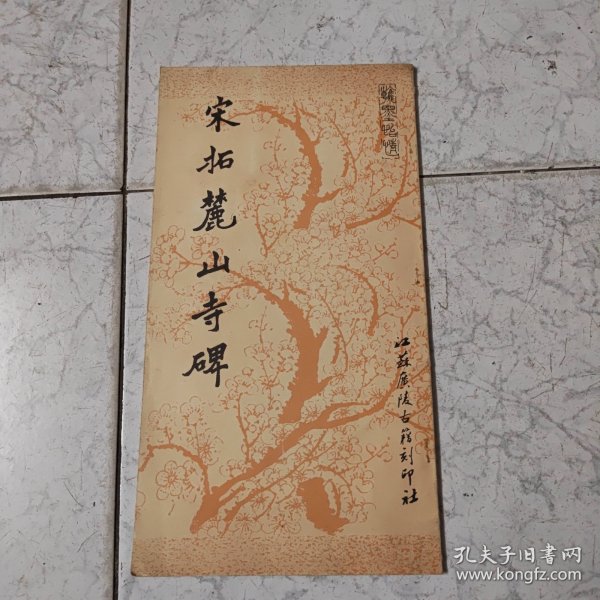 宋拓麓山寺碑
江蘇廣陵古籍刻印社
孔夫子旧书网
www.kongfz.com